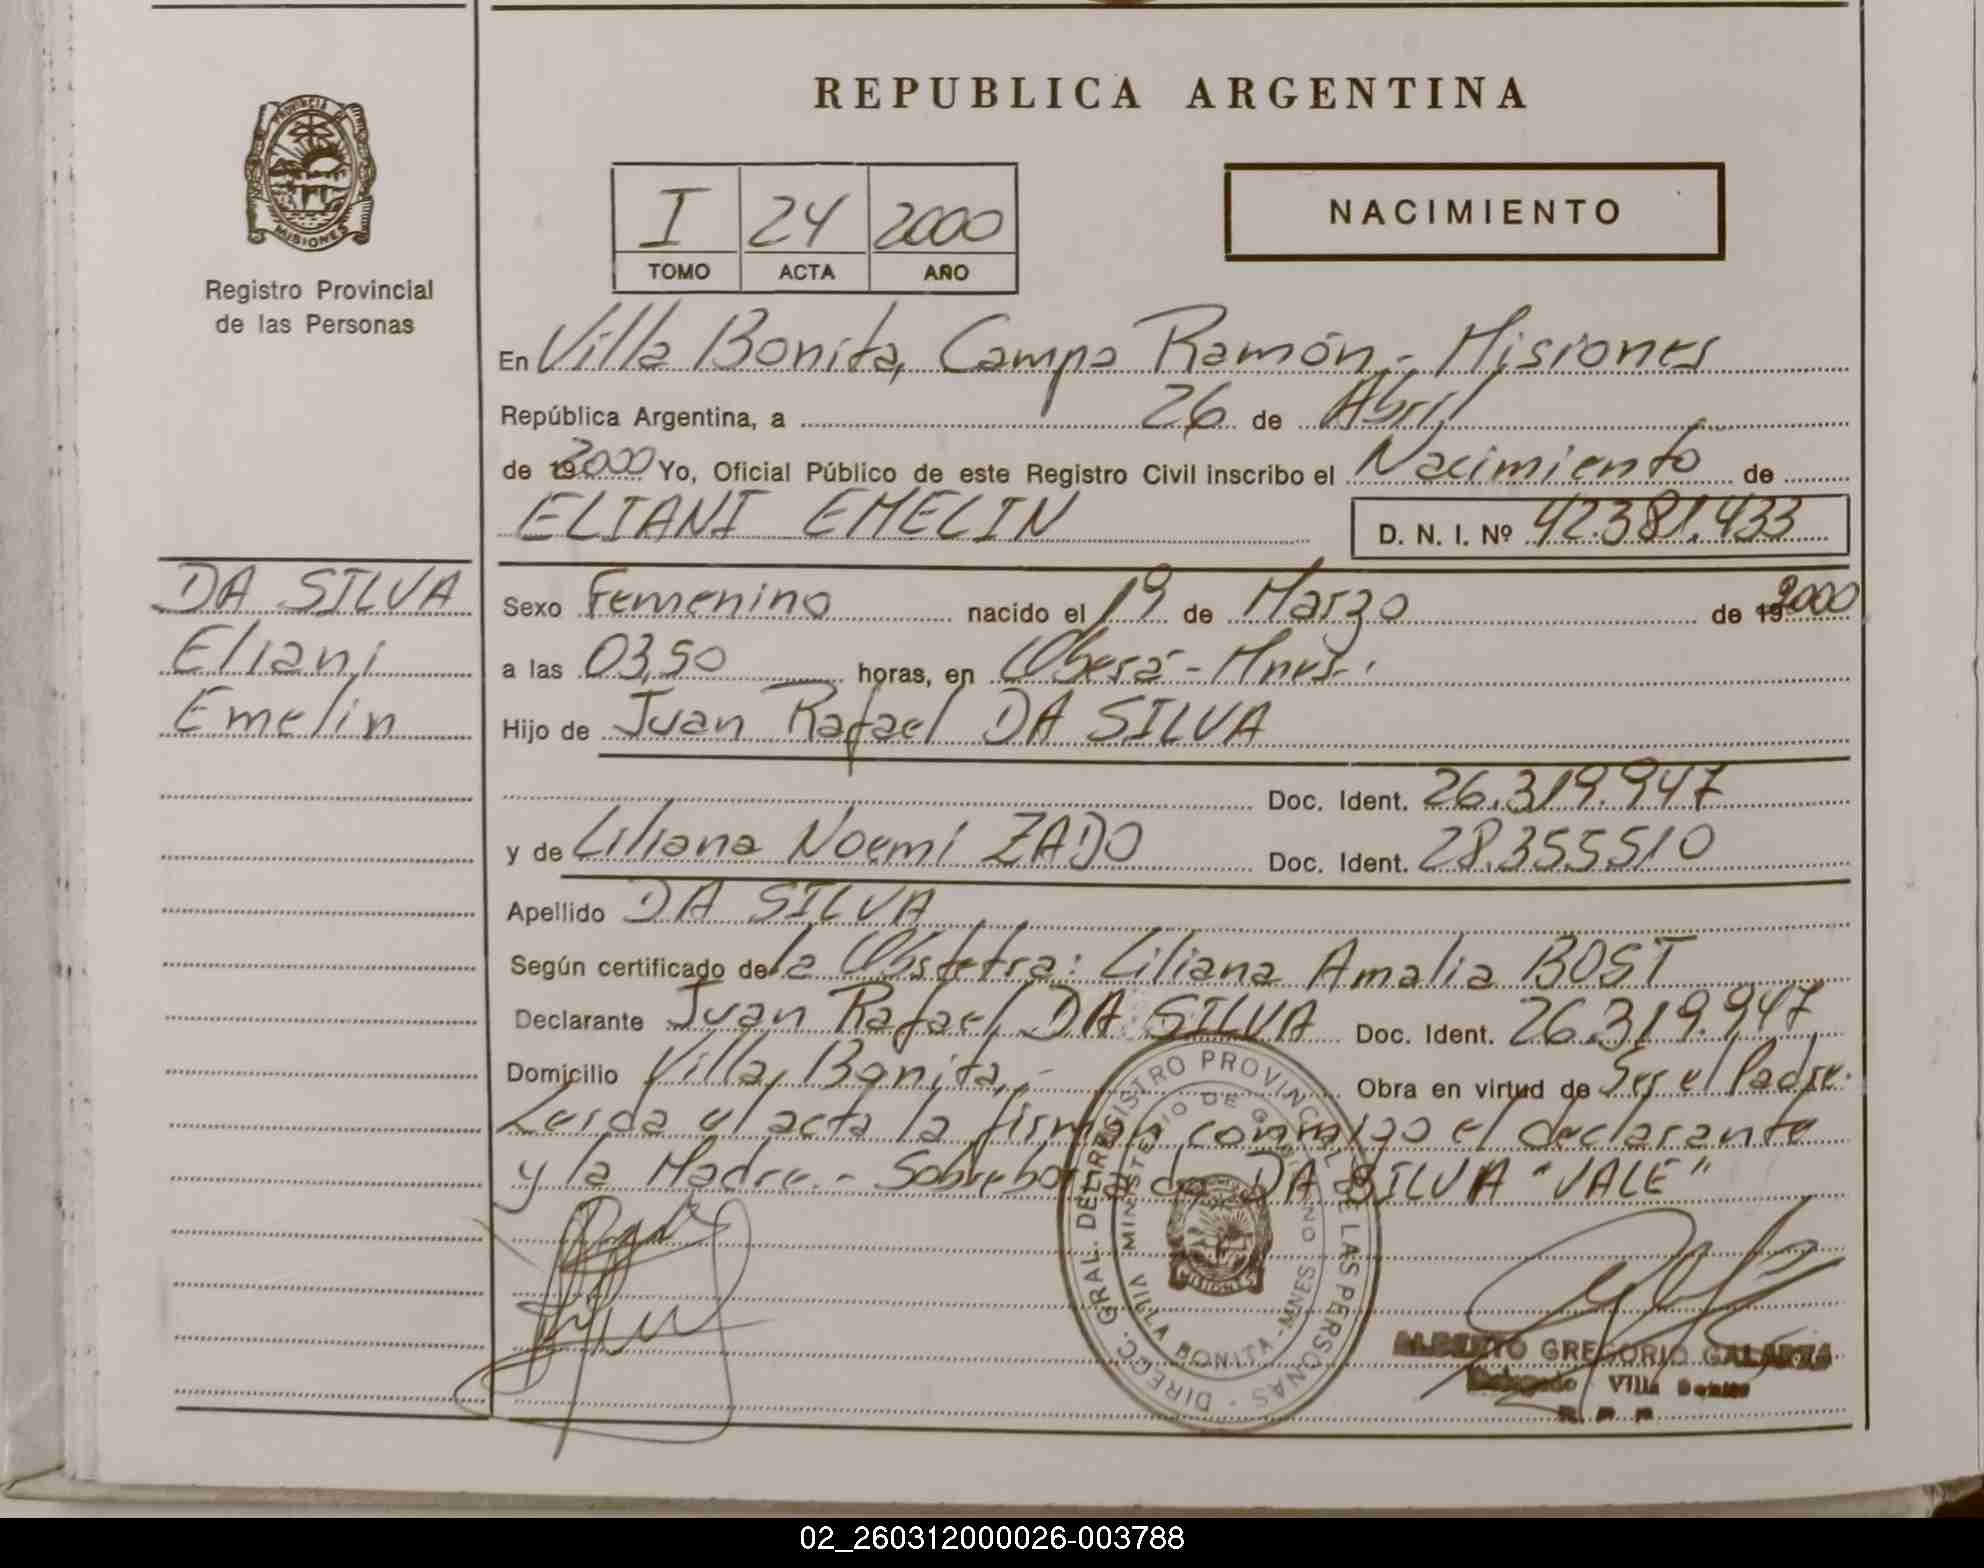 REPUBLICA ARGENTINA
PROVINCIA DE
MISIONES
Registro Provincial
de las Personas
I 24 2000
TOMO ACTA AÑO
NACIMIENTO
En Villa Bonita, Campo Ramón - Misiones
República Argentina, a 26 de Abril
de 192000 Yo, Oficial Público de este Registro Civil inscribo el Nacimiento de
ELIANI EMELIN D. N. I. Nº 42.381.433
DA SILVA
Eliani
Emelin
Sexo Femenino nacido el 19 de Marzo de 192000
a las 03,50 horas, en Oberá - Mnes.
Hijo de Juan Rafael DA SILVA
Doc. Ident. 26.319.947
y de Liliana Noemi ZADO Doc. Ident. 28.355510
Apellido DA SILVA
Según certificado de la Obstetra: Liliana Amalia BOST
Declarante Juan Rafael DA SILVA Doc. Ident. 26.319.947
Domicilio Villa Bonita, - Obra en virtud de Ser el Padre.
Leida el acta la firman conmigo el declarante
y la Madre. - Sobreborrado DA SILVA "VALE"
DIRECC. GRAL. DEL REGISTRO PROVINCIAL DE LAS PERSONAS -
MINISTERIO DE
VILLA BONITA - MNES
MISIONES
ALBERTO GREGORIO GALARZA
Delegado Villa Bonita
R. P. P.
02_260312000026-003788